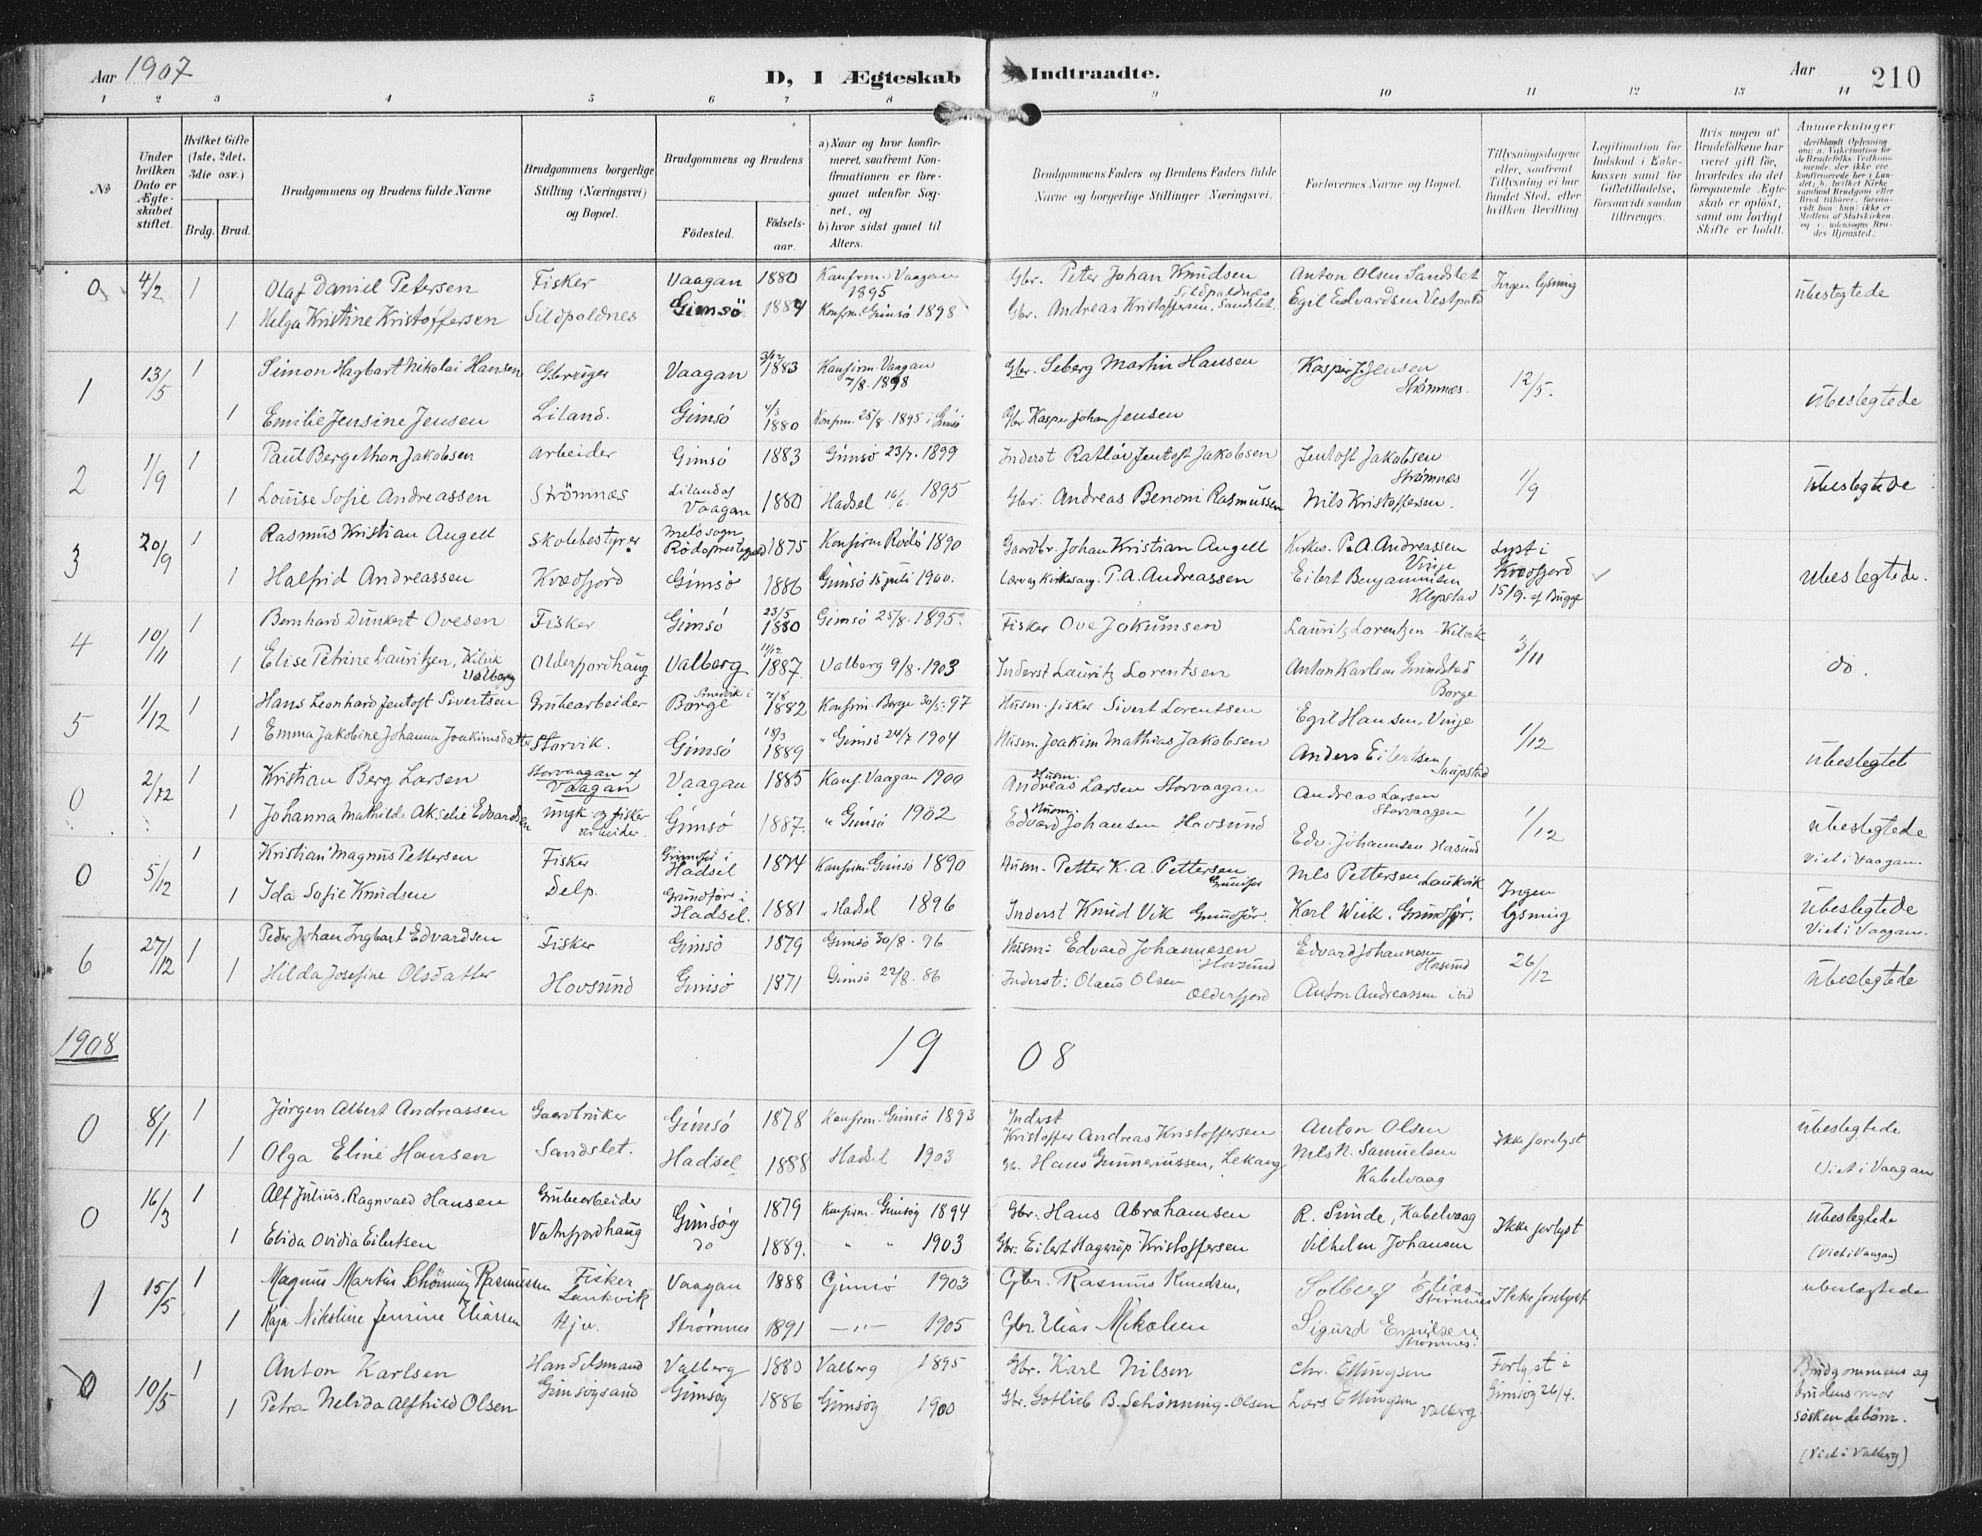 Aar 1907
D, I Ægteskab Indtraadte.
Aar 210
1 2 3 4 5 6 7 8 9 10 11 12 13 14
No
Under hvilken Dato er Ægteskabet stiftet.
Hvilket Gifte (1ste, 2det, 3die osv.)
Brdg. Brud.
Brudgommens og Brudens fulde Navne
Brudgommens borgerlige Stilling (Næringsvei) og Bopæl.
Brudgommens og Brudens
Fødested. Fødselsaar.
a) Naar og hvor konfirmeret, saafremt Konfirmationen er foregaaet udenfor Sognet, og
b) hvor sidst gaaet til Alters.
Brudgommens Faders og Brudens Faders fulde Navne og borgerlige Stillinger (Næringsvei).
Forlovernes Navne og Bopæl.
Tillysningsdagene eller, saafremt Tillysning ei har fundet Sted, efter hvilken Bevilling
Legitimation for Indskud i Enkekassen samt for Giftetilladelse, forsaavidt saadan tiltrænges.
Hvis nogen af Brudefolkene har været gift før, hvorledes da det foregaaende Ægteskab er opløst, samt om lovligt Skifte er holdt.
Anmerkninger
0 4/2 1 Olaf Daniel Petersen Fisker Vaagan 1880 Konfirm. Vaagan 1895 Gbr. Peter Johan Knudsen Sildpoldnes Anton Olsen Sandslet Ingen lysning ubeslegtede
1 Helga Kristine Kristoffersen Sildpoldnes Gimsö 1884 Konfirm. Gimsö 1898 Gbr. Andreas Kristoffersen, Sandslet Egil Edvardsen Vestpold
1 13/5 1 Simon Hagbart Nikolai Hansen Gbruger Vaagan 3/12 1883 Konfirm. Vaagan 7/8. 1898 Gbr. Seberg Martin Hansen Kasper J. Jensen Strømnes. 12/5. ubeslegtede
1 Emilie Jensine Jensen Liland. Gimsö 4/3 1880 Konfirm. 25/8. 1895 i Gimsö Gbr Kasper Johan Jensen
2 1/9 1 Paul Bergethon Jakobsen Arbeider Gimsö 1883 Gimsö 23/7. 1899 Inderst Ratlov Jentoft Jakobsen Jentoft Jakobsen Strømnes 1/9 ubeslegtede
1 Louise Sofie Andreassen Strömnæs Liland af Vaagan 1880 Hadsel 16/6. 1895 Gbr. Andreas Benoni Rasmussen Nils Kristoffersen.
3 20/9 1 Rasmus Kristian Angell Skolebestyrer Melö sogn Rödöprestegjeld 1875 Konfirm Rödö 1890 Gaardbr. Johan Kristian Angell Kirkes. P. A. Andreassen Vinje Lyst i Kvedfjord 15/9. af Bugge ubeslegtede.
1 Halfrid Andreassen Kvædfjord Gimsö 1886 Gimsö 15 juli 1900. Lærer og Kirkesang. P. A. Andreassen Eilert Benjaminsen Klepstad
4 10/11 1 Bernhard Dunkert Ovesen Fisker Gimsö 23/5 1880 Gimsö 25/8. 1895. Fisker Ove Jokumsen Lauritz Lorentzen Kilvik 3/11 do.
1 Elise Petrine Lauritzen, Kilvik Valberg Olderfjordhaug Valberg 10/12 1887. Valberg 9/8. 1903 Inderst Lauritz Lorentsen Anton Karlsen Grundstad Borge
5 1/12 1 Hans Leonhard Jentoft Sivertsen Grubearbeider Smedvik i Borge 7/8 1882 Konfirm. Borge 30/5. 97 Husm. fisker Sivert Lorentsen Egil Hansen, Vinje 1/12 ubeslegtet
1 Emma Jakobine Johanna Joakimsdatter Storvik. Gimsö 18/3 1889 " Gimsö 24/7 1904 Husm. Joakim Mathias Jakobsen Anders Eilertsen Saupstad
0 2/12 1 Kristian Berg Larsen Storvaagan af Vaagan Vaagan 1885 Konf. Vaagan 1900 Husm. Andreas Larsen Storvaagan Andreas Larsen Storvaagen 1/12 ubeslegtede Viet i Vaagan.
1 Johanna Mathilde Akselie Edvardsen Ungk og fisker arbeider. Gimsö 1887. " Gimsö 1902 Husm. Edvard Johansen Hovsund Edv. Johannsen Hovsund
0 5/12 1 Kristian Magnus Pettersen Fisker Grunnfør i Hadsel 1874 Konfirm. Gimsö 1890 Husm. Petter K. A. Pettersen Grunnfør Nils Pettersen Laukvik Ingen lysning ubeslegtede Viet i Vaagan.
1 Ida Sofie Knudsen Delp. Grundför i Hadsel. 1881 " Hadsel 1896 Inderst Knud Vik Grundför. Karl Wiik, Grundför.
6 27/12 1 Peder Johan Ingbart Edvardsen Fisker Gimsö 1879 Gimsö 30/8. 96 Husm: Edvard Johannesen Hovsund Edvard Johannesen Hovsund 26/12 ubeslegtede
1 Hilda Josefine Olsdatter Hovsund Gimsö 1871 Gimsö 22/8. 86 Inderst: Olaus Olsen Olderfjord Anton Andreassen ibid
1908 19 08
0 8/1 1 Jörgen Albert Andreassen Gaardbruker Gimsö 1878 Konfirm. Gimsö 1893 Inderst Kristoffer Andreas Kristoffersen Anton Olsen Ikke forlyst ubeslegtede
1 Olga Eline Hansen Sandslet. Hadsel 1888 Hadsel 1903 Gbr. Hans Gunneriussen, Lekang Nils N. Samuelsen Kabelvaag Viet i Vaagan
0 16/3 1 Alf Julius, Ragnvald Hansen Grubearbeider Gimsög 1879 Konfirm. Gimsög 1894 Gbr. Hans Abrahamsen R. Sunde, Kabelvaag Ikke forlyst ubeslegtede
1 Elida Ovidia Eilertsen Vatnfjordhaug do 1889. " " 1903 Gbr. Eilert Hagerup Kristoffersen Vilhelm Johansen (Viet i Vaagan)
1 15/5 1 Magnus Martin Schönning Rasmussen Fisker Laukvik Vaagan 1888 Gimsö 1903 Gbr. Rasmus Knudsen, Solberg Elias Strømnes Ikke forlyst ubeslægtede
1 Kaja Nikoline Jensine Eliassen Hjv. Strømnes 1891 —"— 1905 Gbr. Elias Mikalsen Sigurd Emilsen Strömnes.
0 10/5 1 Anton Karlsen Handelsmand Valberg 1880 Valberg 1895 Gbr. Karl Nilsen Chr. Ellingsen Forlyst i Gimsög 26/4. Brudgommens og brudens mor söskendebörn.
1 Petra Nelida Alfhild Olsen Gimsögsand Gimsög 1886 Gimsög 1900 Gbr. Gotlieb B. Schönning-Olsen Lars Ellingsen Valberg. (Viet i Valberg)